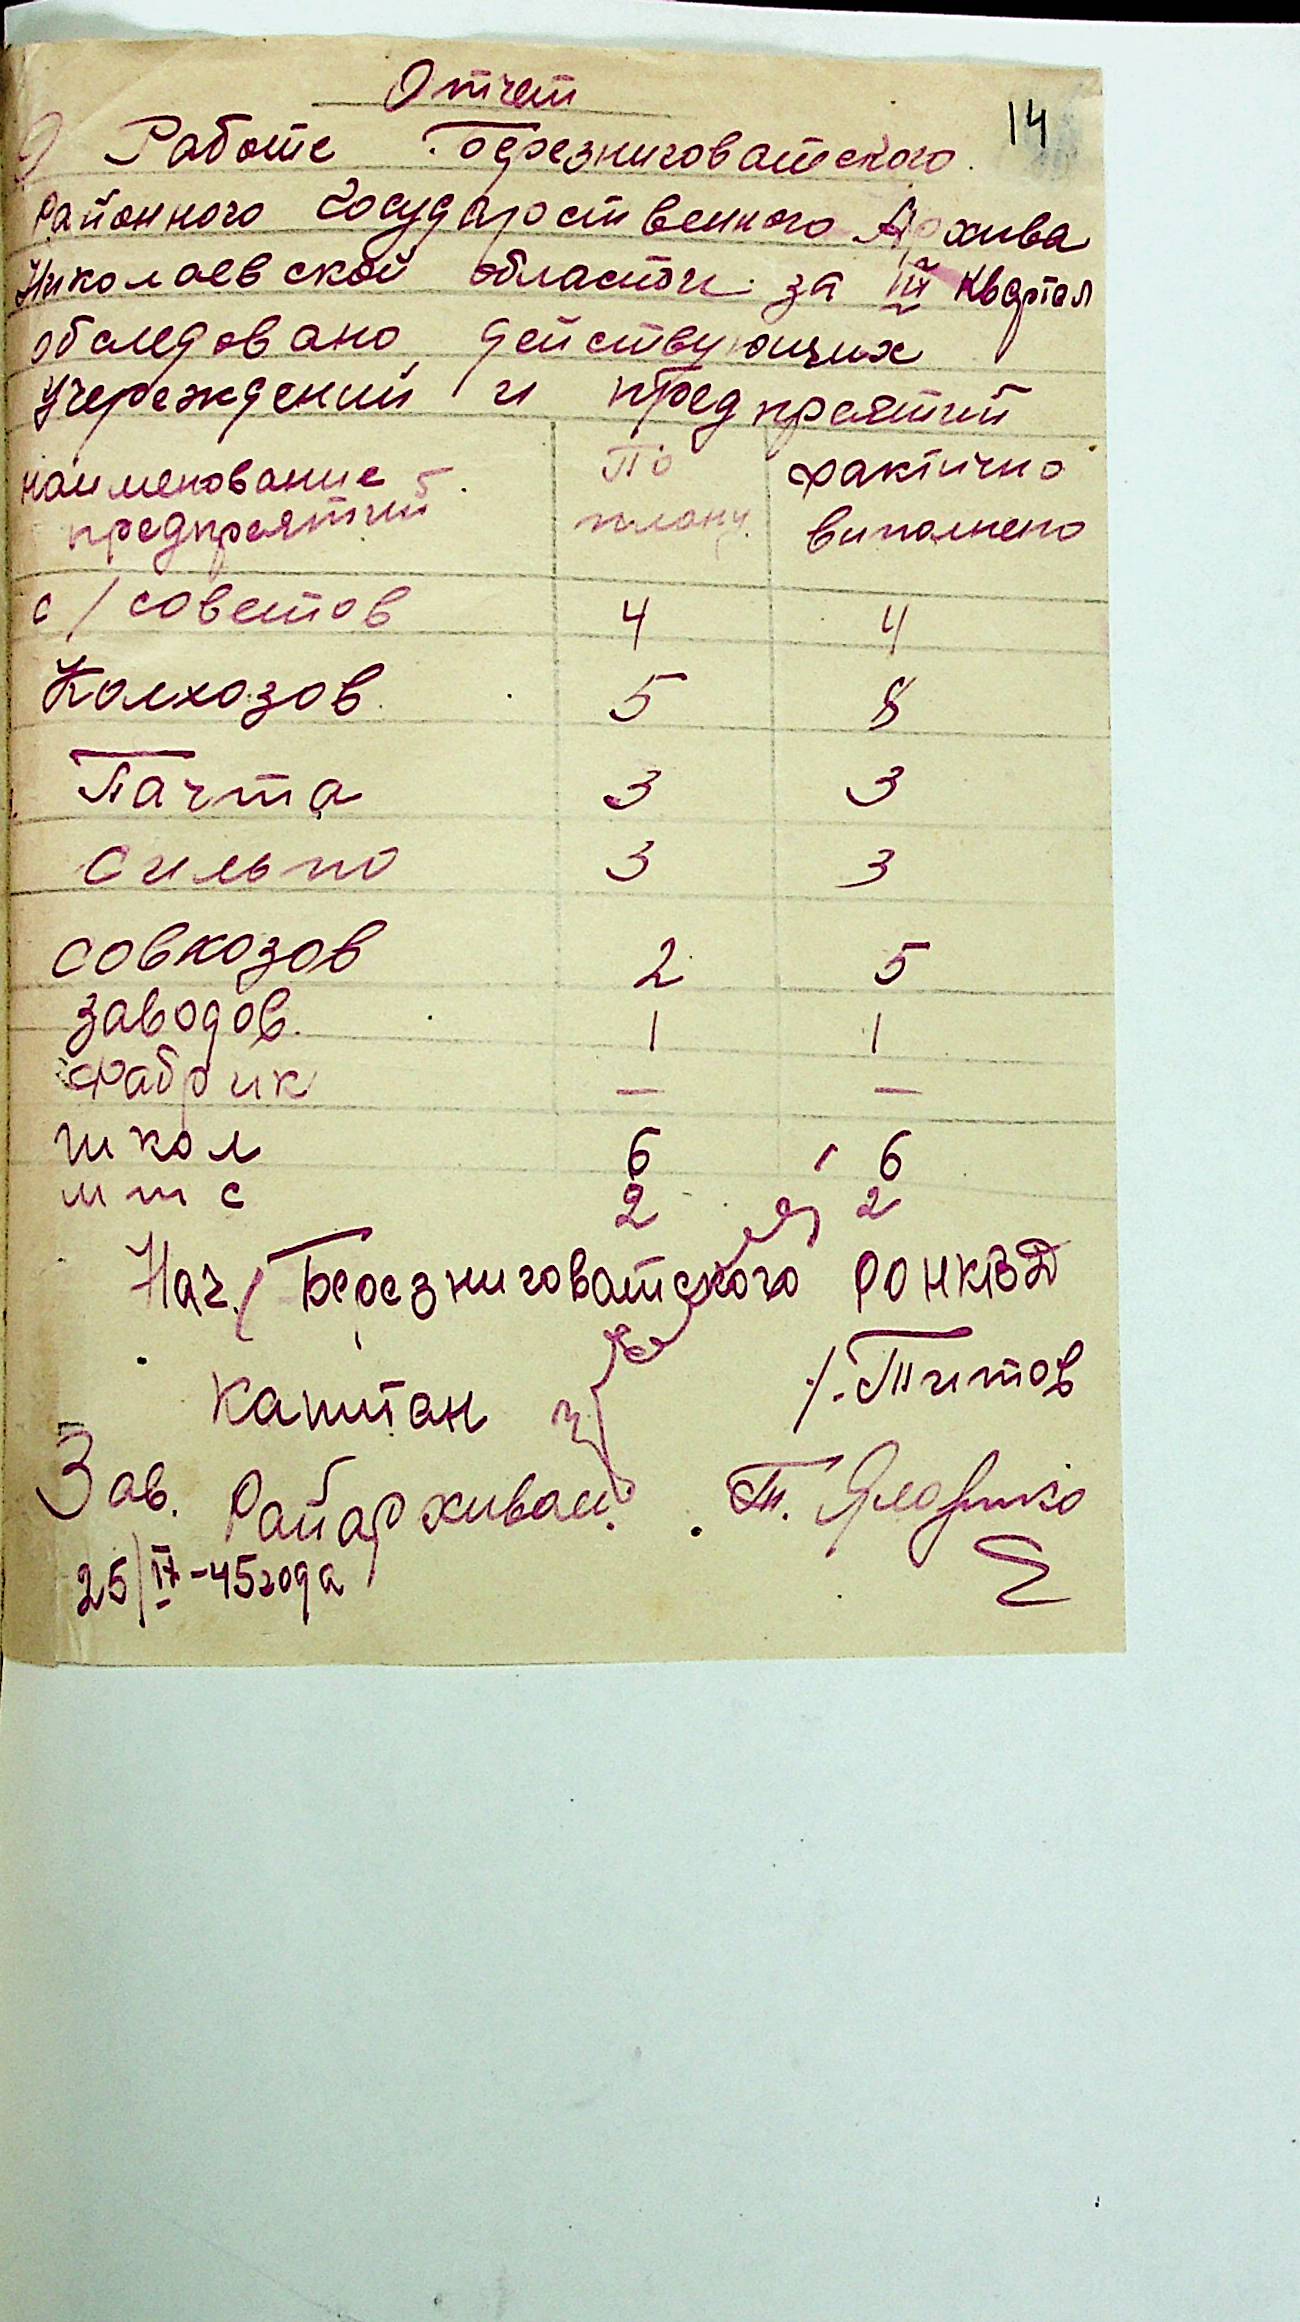 14
Отчет
О Работе Березниговатского
Районного Государственного Архива
Николаевской области за III Квартал
обследовано действующих
учереждений и предпреятий
наименование предпреятий По плану фактично виполнено
с/советов 4 4
Колхозов 5 8
Пачта 3 3
Сильпо 3 3
совхозов 2 5
заводов. 1 1
Фабрик — —
школ 6 6
мтс 2 2
Нач. Березниговатского РОНКВД
капитан /.Титов
Зав. Райархивам. Т.
25/IX-45 года